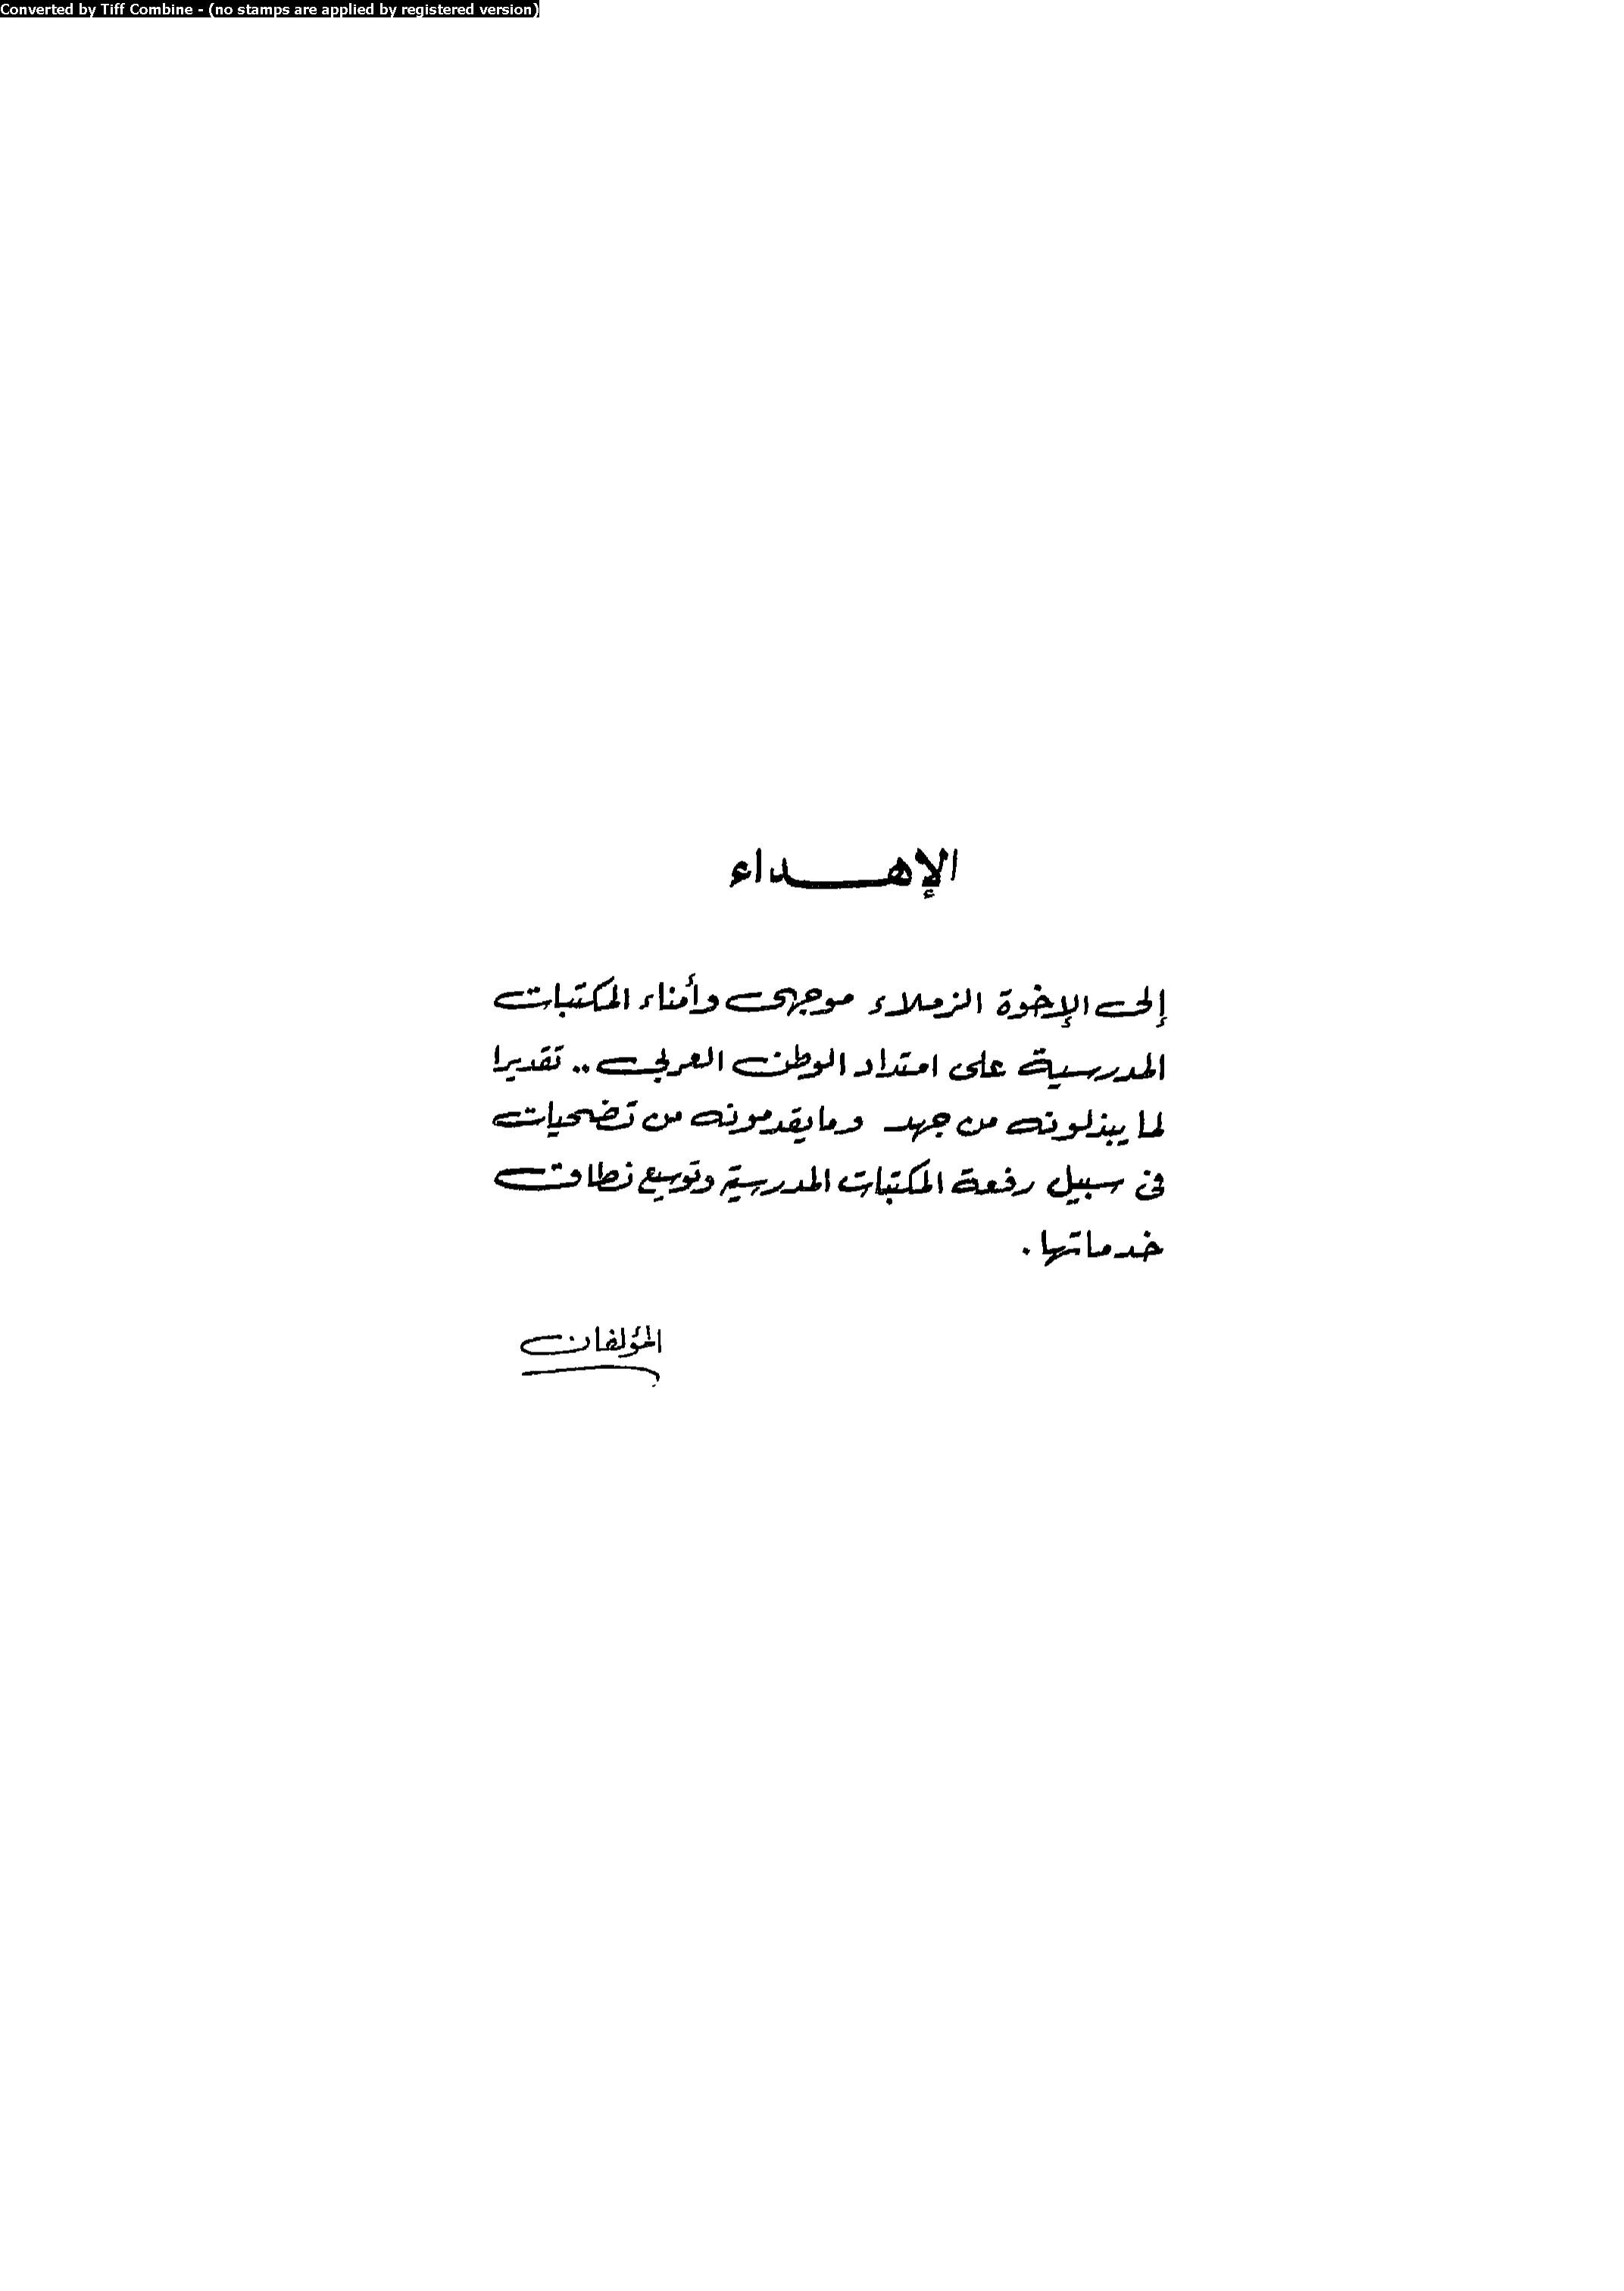 Converted by Tiff Combine - (no stamps are applied by registered version)
الإهـــداء
إلى الإخوة الزملاء موجهى وأمناء المكتبات
المدرسية على امتداد الوطن العربى .. تقديرا
لما يبذلونه من جهد وما يقدمونه من تضحيات
فى سبيل رفعة المكتبات المدرسية وتوسيع نطاق
خدماتها .
المؤلفان